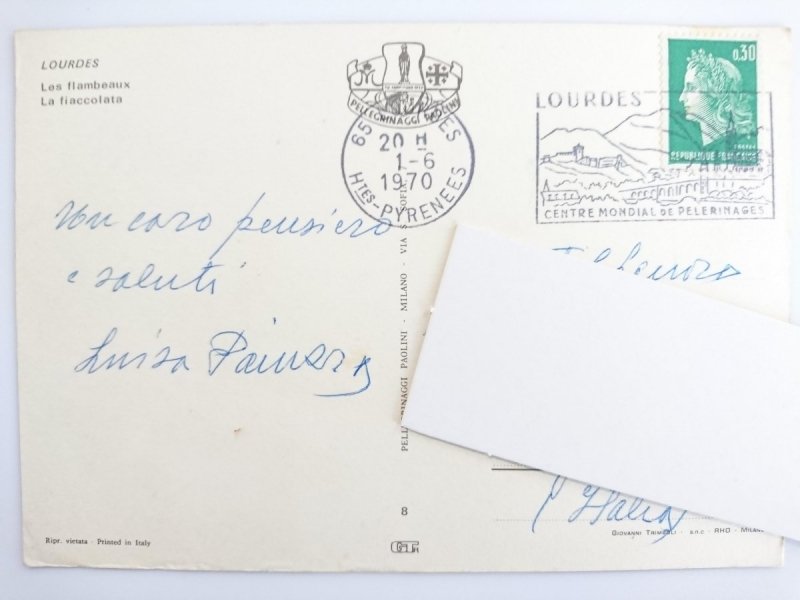 LOURDES
Les flambeaux
La fiaccolata
PELLEGRINAGGI PAOLINI
65 ES
20 H
1-6
1970
HTES-PYRENEES
LOURDES
CENTRE MONDIAL DE PELERINAGES
0,30
REPUBLIQUE FRANÇAISE
Un caro pensiero
e saluti
Luisa
PAOLINI - MILANO - VIA S. SOFIA
(Italia)
8
Ripr. vietata - Printed in Italy
GIOVANNI - s.n.c. - RHO - MILANO